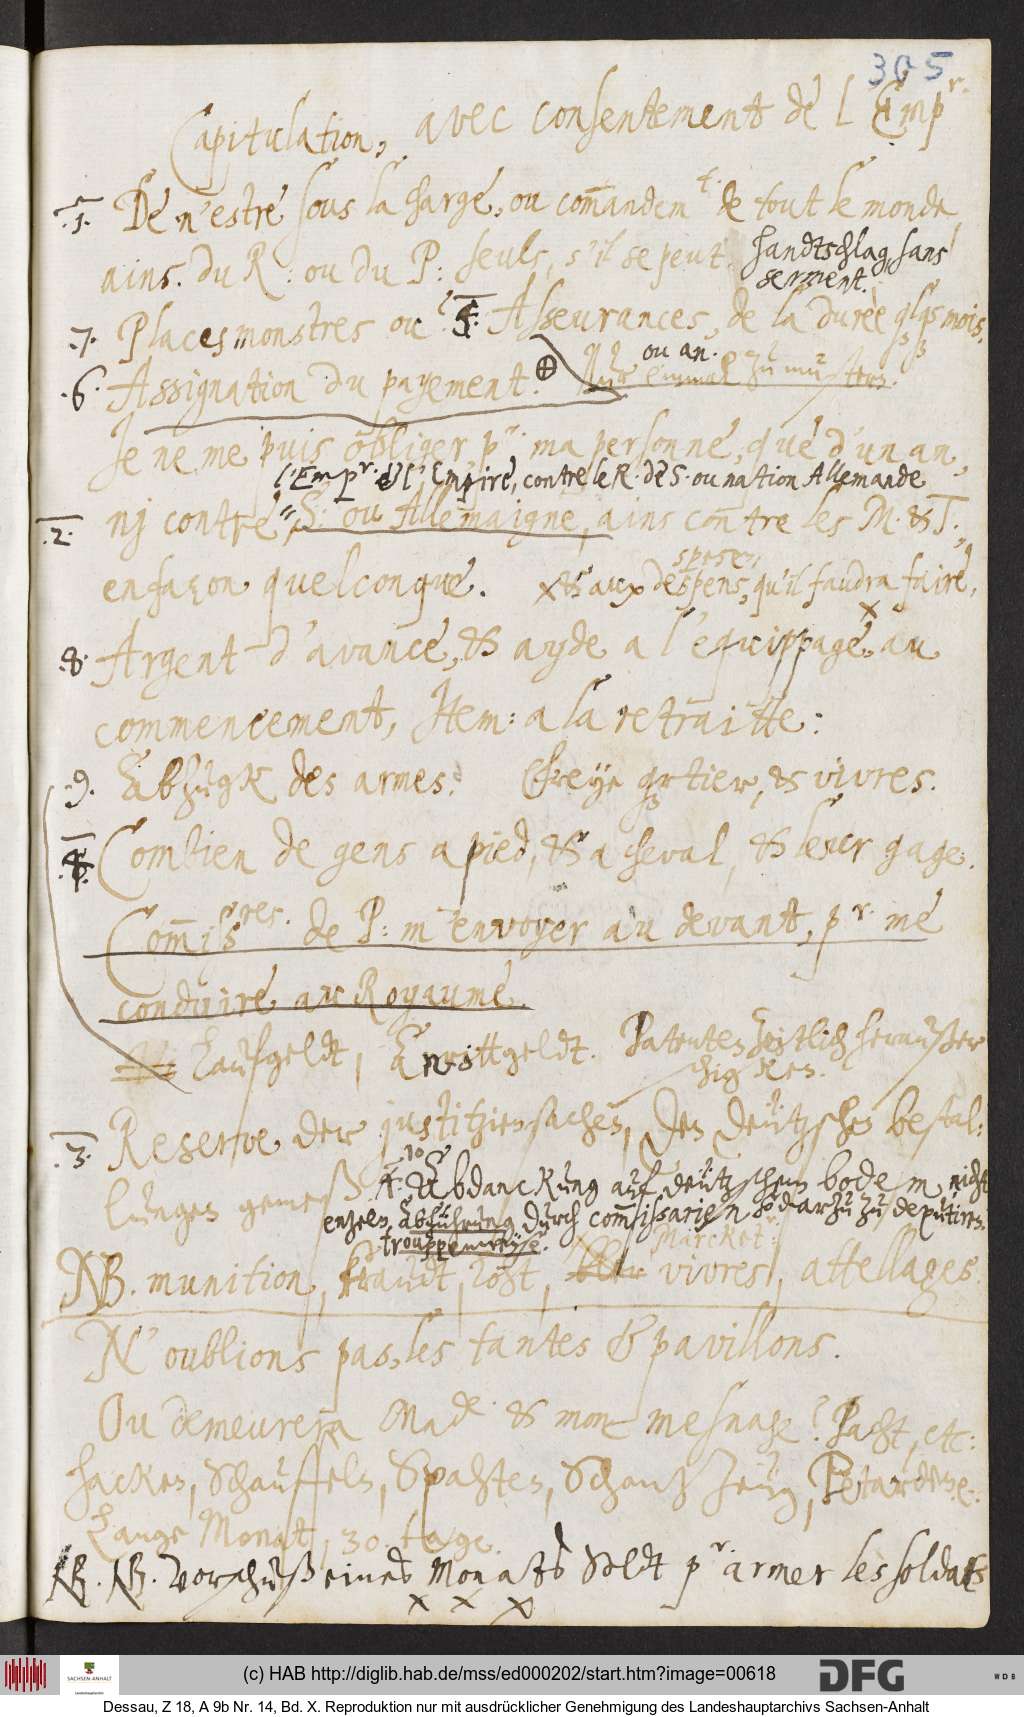 305
Capitulation, avec consentement de l'Emp.r
.1. De n'estre sous la charge, ou com̅andem.t de tout le monde
ains. du R: ou du P: seuls, s'il se peut. handtschlag, sans
serment.
.7. Places monstres ou? 5. Asseurances, de la durèe qlqs mois.
ou an.
.6. Assignation du payement. ⊕ Nur einmal zu mustern.
Je ne me puis obliger p.r ma personne, que d'un an,
l'Emp.r & l'Empire, contre le R. de S. ou nation Allemande
.2. nj contre S. ou Allemaigne, ains contre les M. & T.,
spesen,
en façon quelconque. x & aux despens, qu'il faudra faire, x
.8. Argent d'avance, & ayde a l'equippage, au
commencement, Item: a la retraitte:
.9. Abzugk des armes. Freye qrtier, & vivres.
.4. Combien de gens a pied, & a cheval, & leur gage.
Com̅iss.res de P: m'envoyer au devant, p.r me
conduire au Royaume.
Laufgeldt, Anrittgeldt. Patenten zeitlich heraußer
schicken.
.3. Reserve der justitziensachen, den deützschen bestal:
lungen gemeß
10
A. Abdanckung auf deützschem bodem, nicht
entzeln, abführung durch com̅issarien so darzu zu deputiren.
trouppenweyse. Marcket:
NB. munition, kraudt, lost, vivres, attellages.
N'oublions pas, les tantes & pavillons.
Ou demeurera Mad.e & mon mesnage? Pacht, etc:
hacken, Schauffeln, Spahten, Schantz zeüg, Petarden. e:
Lange Monat, 30. tage.
NB. NB. Vorschuß eines Monats Soldt p.r armer les soldats
x x x
(c) HAB http://diglib.hab.de/mss/ed000202/start.htm?image=00618
SACHSEN-ANHALT
DFG
WDB
Dessau, Z 18, A 9b Nr. 14, Bd. X. Reproduktion nur mit ausdrücklicher Genehmigung des Landeshauptarchivs Sachsen-Anhalt